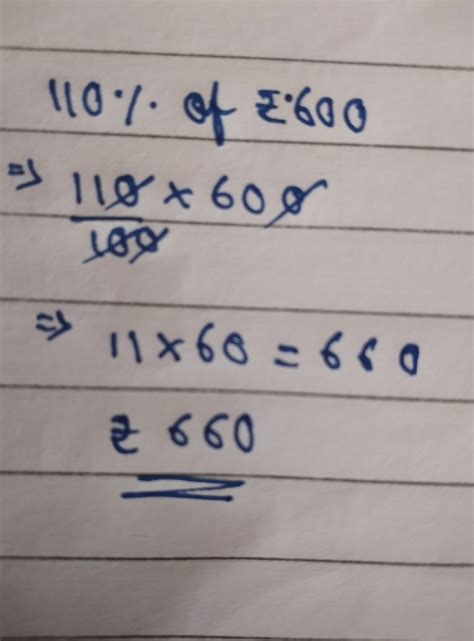 110% of ₹.600
⇒ 110/100 × 600
⇒ 11 × 60 = 660
₹ 660